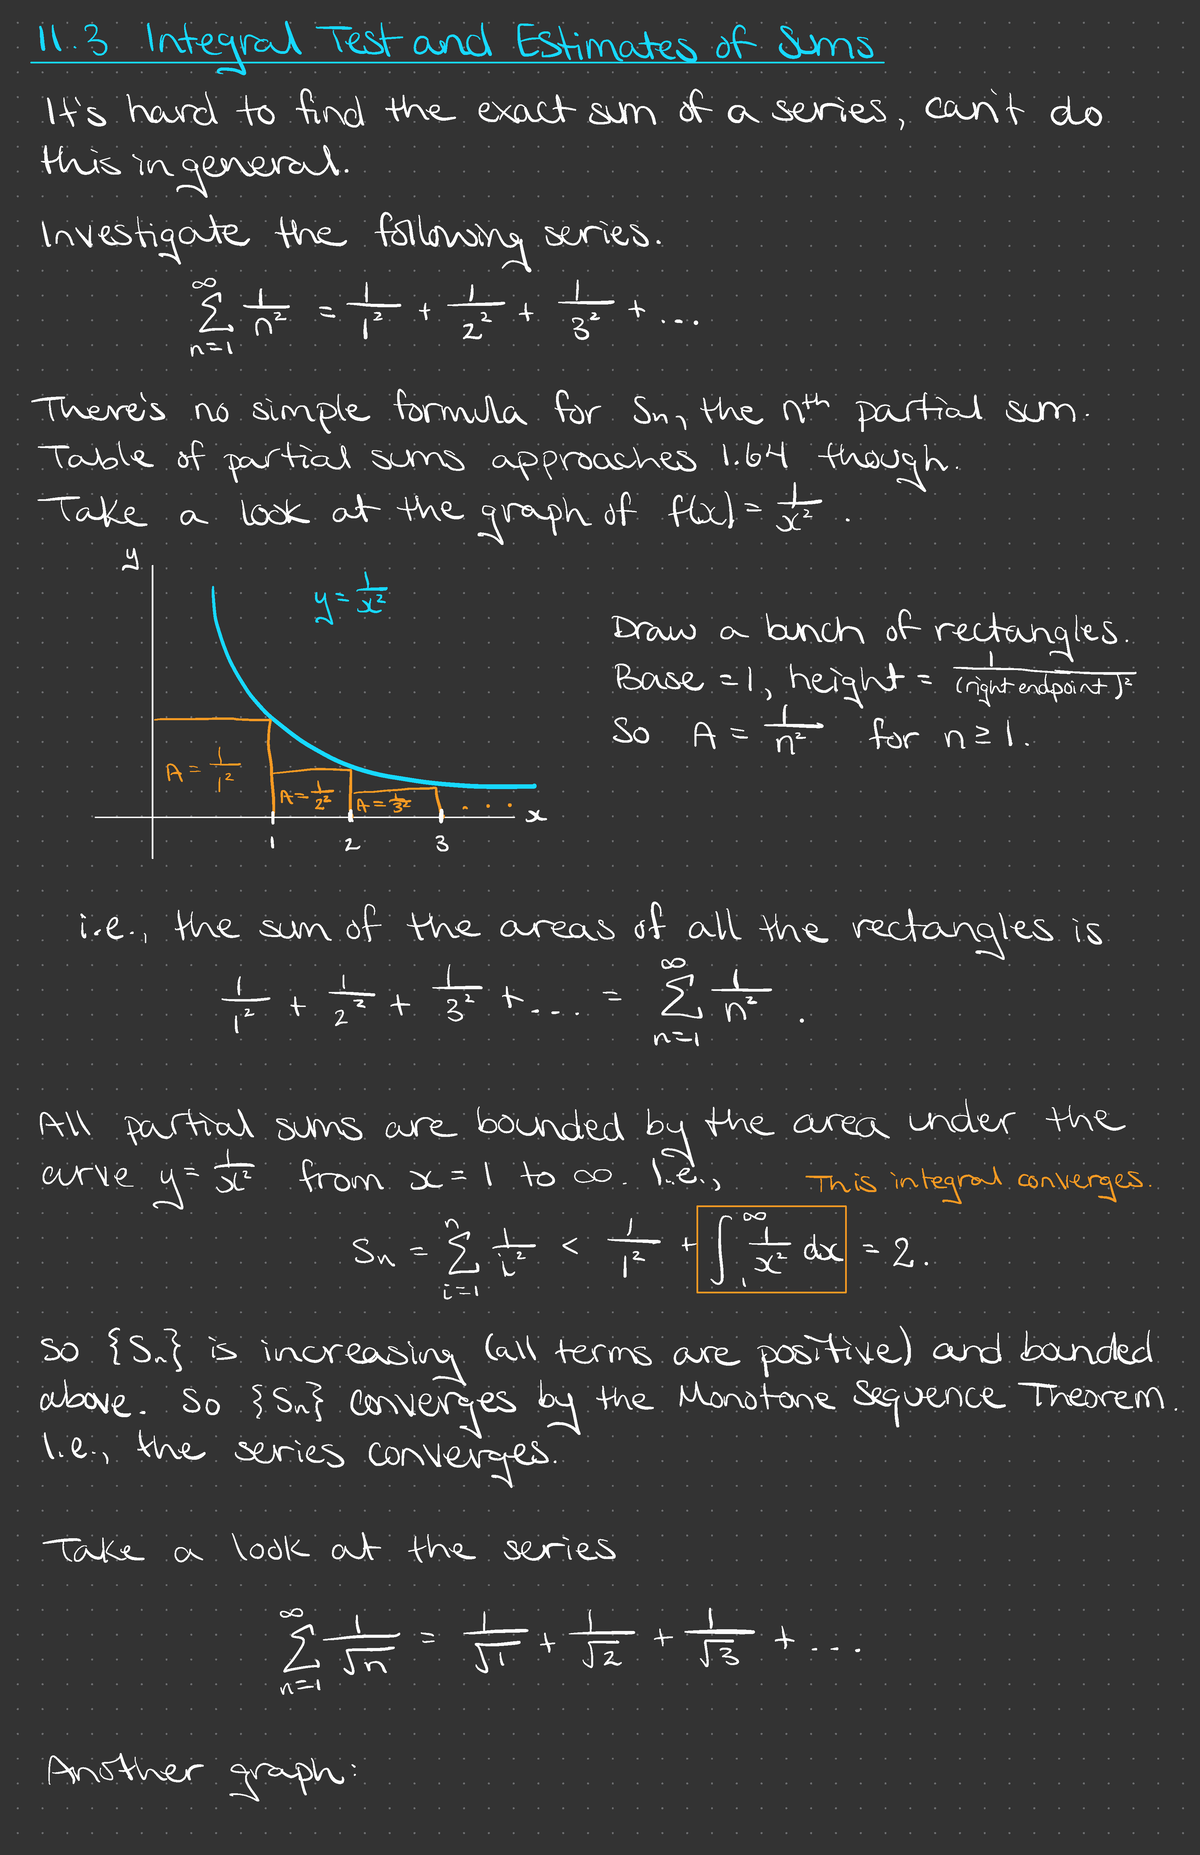 11.3 Integral Test and Estimates of Sums
It's hard to find the exact sum of a series, can't do
this in general.
Investigate the following series.
∑_{n=1}^{∞} 1/n² = 1/1² + 1/2² + 1/3² + ...
There's no simple formula for Sn, the nth partial sum.
Table of partial sums approaches 1.64 though.
Take a look at the graph of f(x) = 1/x².
y
y = 1/x²
A = 1/1²
A = 1/2²
A = 1/3²
...
x
1 2 3
Draw a bunch of rectangles.
Base = 1, height = 1/(right endpoint)²
So A = 1/n² for n ≥ 1.
i.e., the sum of the areas of all the rectangles is
1/1² + 1/2² + 1/3² + .... = ∑_{n=1}^{∞} 1/n².
All partial sums are bounded by the area under the
curve y = 1/x² from x = 1 to ∞. I.e.,
This integral converges.
Sn = ∑_{i=1}^{n} 1/i² < 1/1² + ∫_{1}^{∞} 1/x² dx = 2.
So {Sn} is increasing (all terms are positive) and bounded
above. So {Sn} converges by the Monotone Sequence Theorem.
I.e., the series converges.
Take a look at the series
∑_{n=1}^{∞} 1/√n = 1/√1 + 1/√2 + 1/√3 + ...
Another graph: